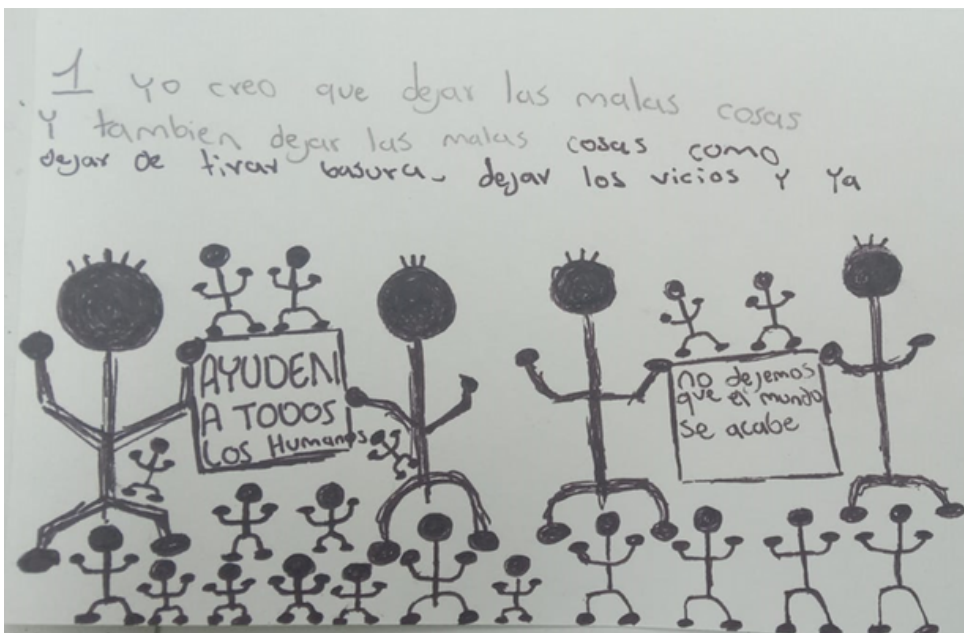 1 Yo creo que dejar las malas cosas
Y tambien dejar las malas cosas como
dejar de tirar basura, dejar los vicios y ya
AYUDEN
A TODOS
LOS Humanos
no dejemos
que el mundo
se acabe